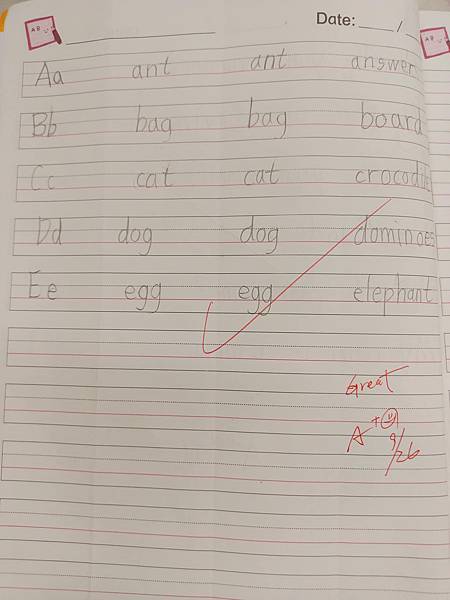 Date: ____ / __
Aa ant ant answer
Bb bag bag board
Cc cat cat crocodile
Dd dog dog dominoes
Ee egg egg elephant
Great
A+
9/26